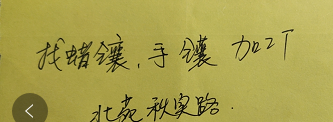 找蜡镶,手镶 加工
北苑秋实路.